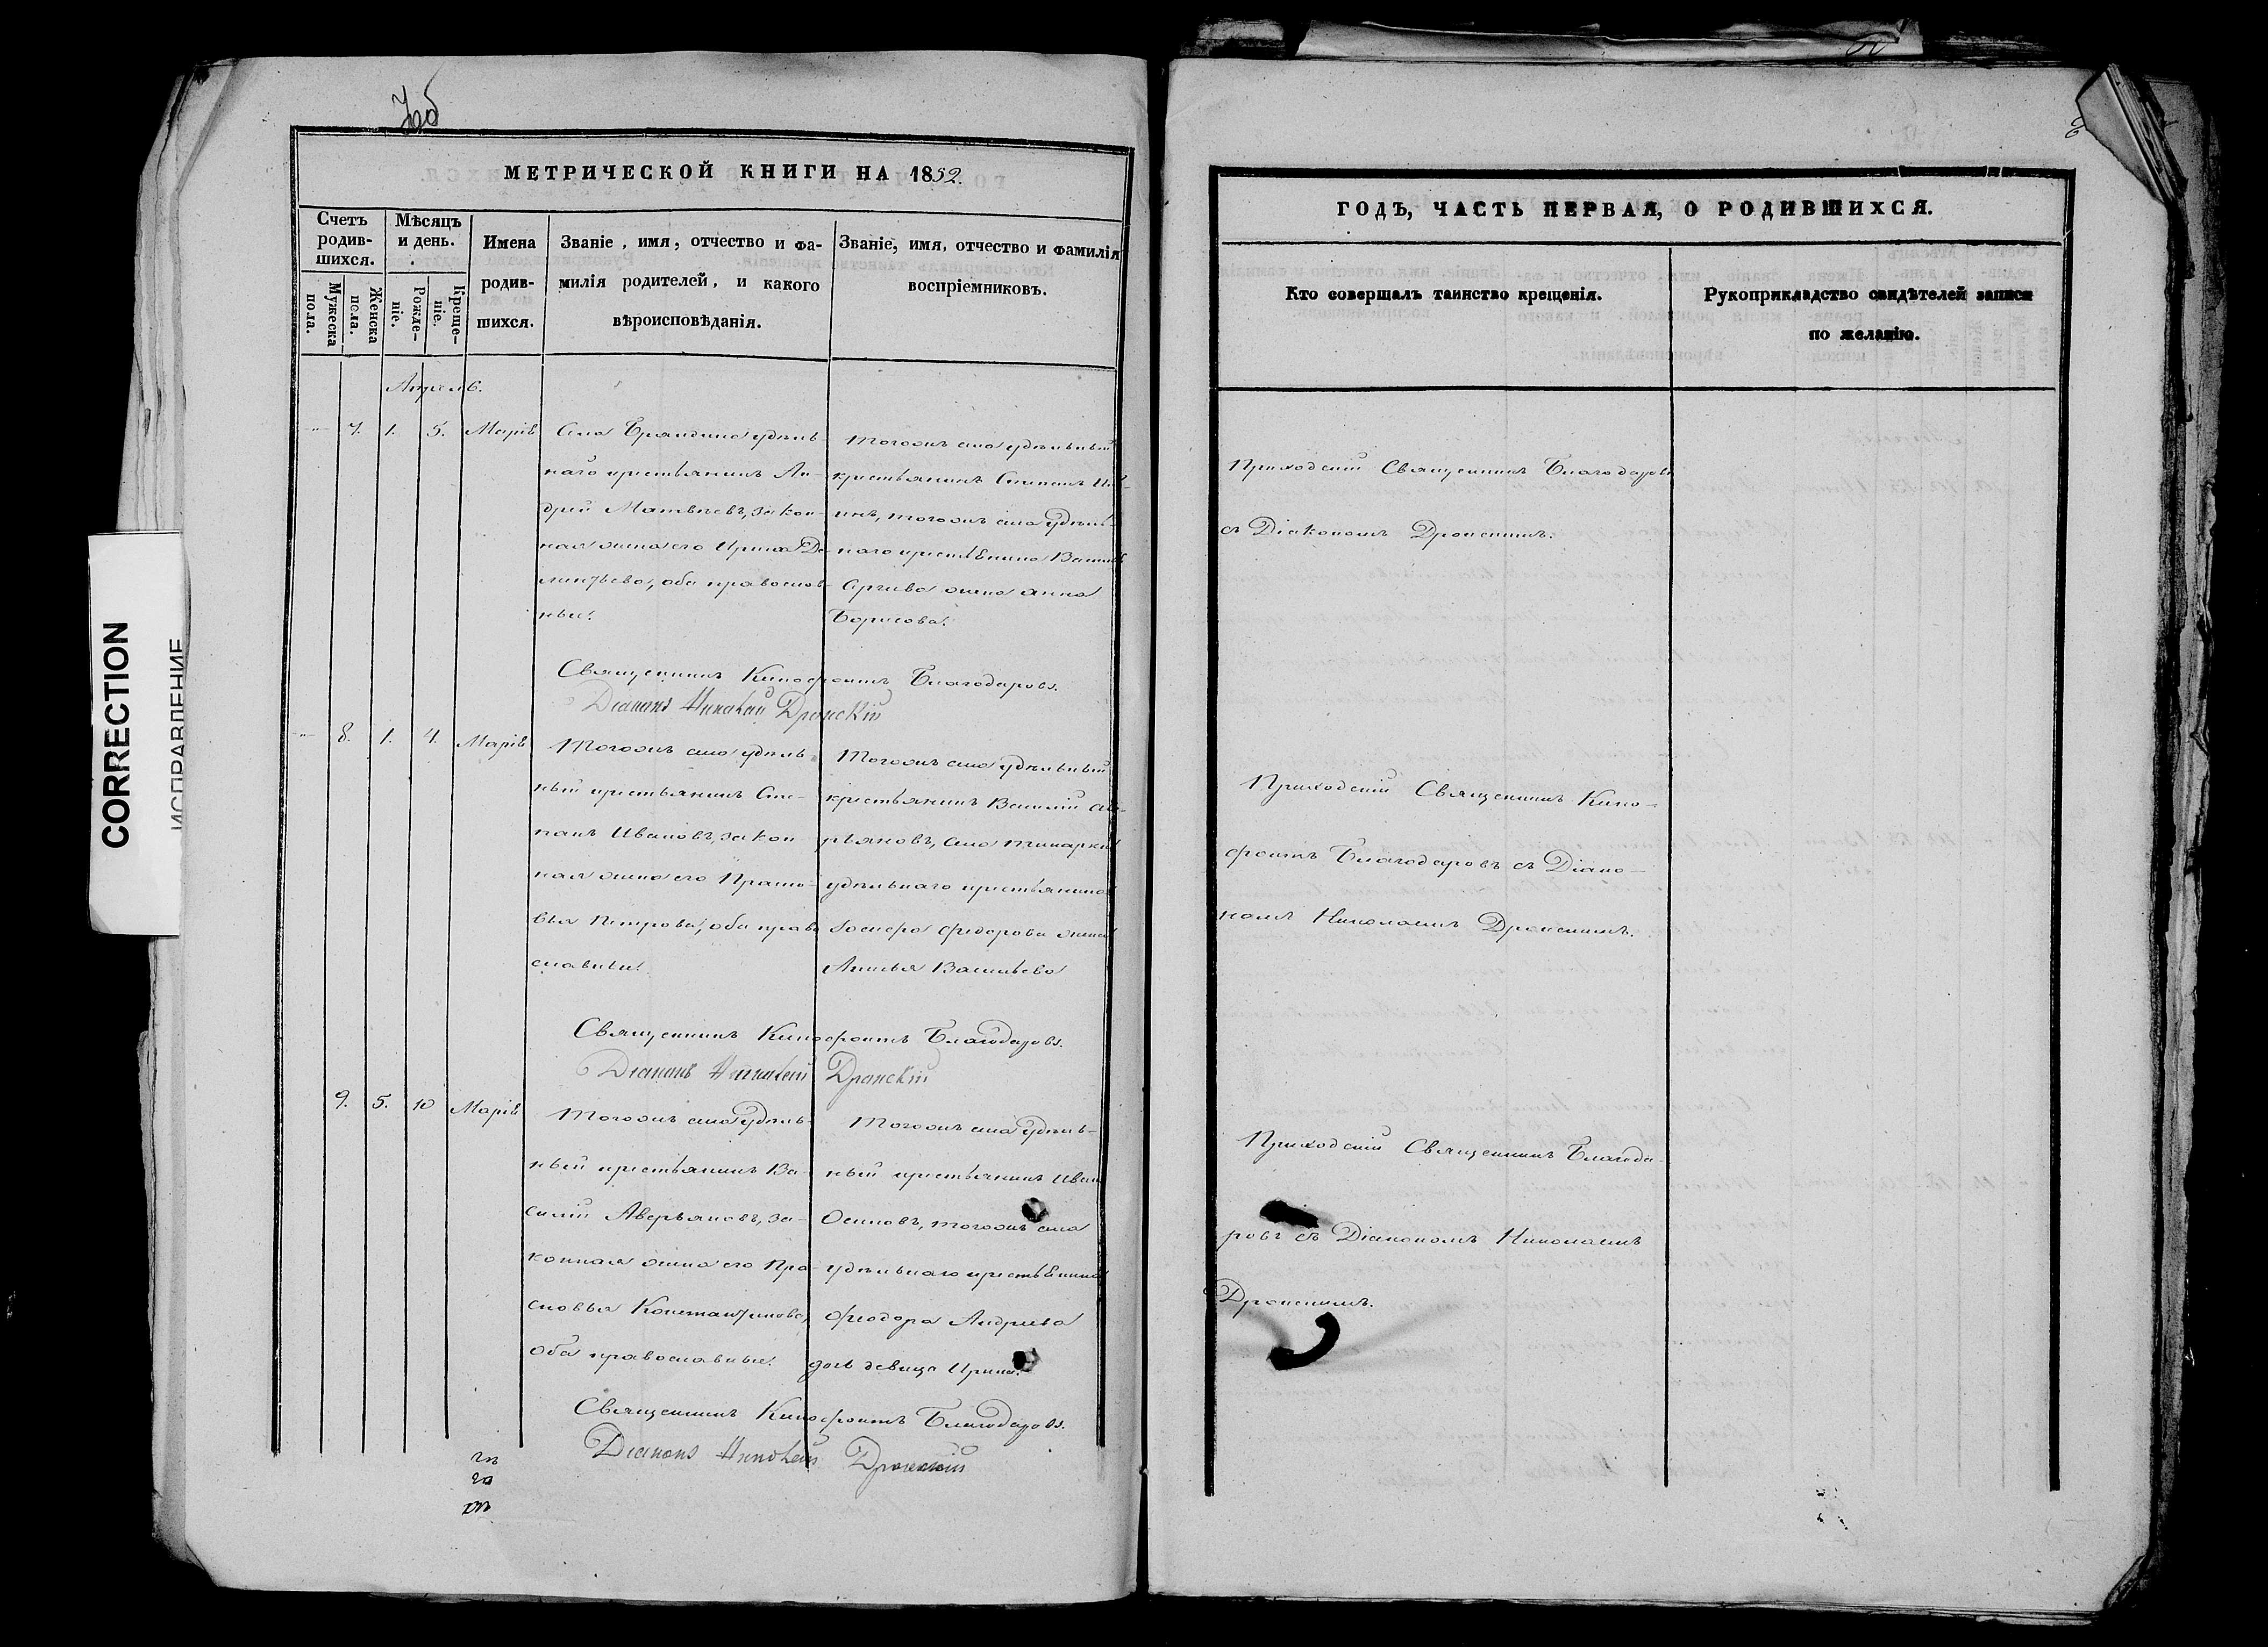 CORRECTION
ИСПРАВЛЕНИЕ
МЕТРИЧЕСКОЙ КНИГИ НА 1852.
Счетъ родив-шихся.
Мѣсяцъ и день.
Имена родив-шихся.
Званіе, имя, отчество и фа-
милія родителей, и какого
вѣроисповѣданія.
Званіе, имя, отчество и фамилія
воспріемниковъ.
Мужеска пола.
Женска пола.
Рожде-ніе.
Креще-ніе.
Апрель.
7. 1. 5. Марія
Села удѣль-
наго крестьянинъ Ан-
дрей Матвѣевъ, закон-
ная жена его Ирина Де-
ментьева, оба православ-
ные.
Тогожъ села удѣльный
крестьянинъ Степанъ
тогожъ села удѣль-
наго крестьянина
жена Анна
Борисова.
Священникъ Ксенофонтъ Благодаровъ.
Діаконъ Николай Дронскій
8. 1. 4. Марія
Тогожъ села удѣль-
ный крестьянинъ Сте-
панъ Ивановъ, закон-
ная жена его Праско-
вья Петрова, оба право
славные.
Тогожъ села удѣльный
крестьянинъ Василій Ав-
рьяновъ, села
удѣльнаго крестьянина
Федорова жена
Васильева
Священникъ Ксенофонтъ Благодаровъ.
Діаконъ Николай Дронскій
9. 5. 10 Марія
Тогожъ села удѣль-
ный крестьянинъ Ва-
силій Аверьяновъ, за-
конная жена его Пра-
сковья Константинова,
оба православные.
Тогожъ села удѣль-
ный крестьянинъ Иванъ
Осиповъ, тогожъ села
удѣльнаго крестьянина
Феодора Андреева
дочь девица Ирина.
Священникъ Ксенофонтъ Благодаровъ.
Діаконъ Николай Дронскій
ГОДЪ, ЧАСТЬ ПЕРВАЯ, О РОДИВШИХСЯ.
Кто совершалъ таинство крещенія.
Рукоприкладство свидѣтелей записи
по желанію.
Приходскій Священникъ Благодаровъ
съ Діакономъ Дронскимъ.
Приходскій Священникъ Ксено-
фонтъ Благодаровъ съ Діако-
номъ Николаемъ Дронскимъ.
Приходскій Священникъ Благода-
ровъ съ Діакономъ Николаемъ
Дронскимъ.